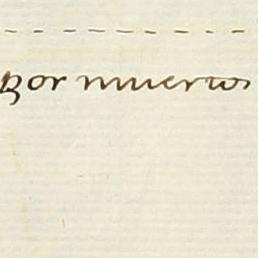 por muertos